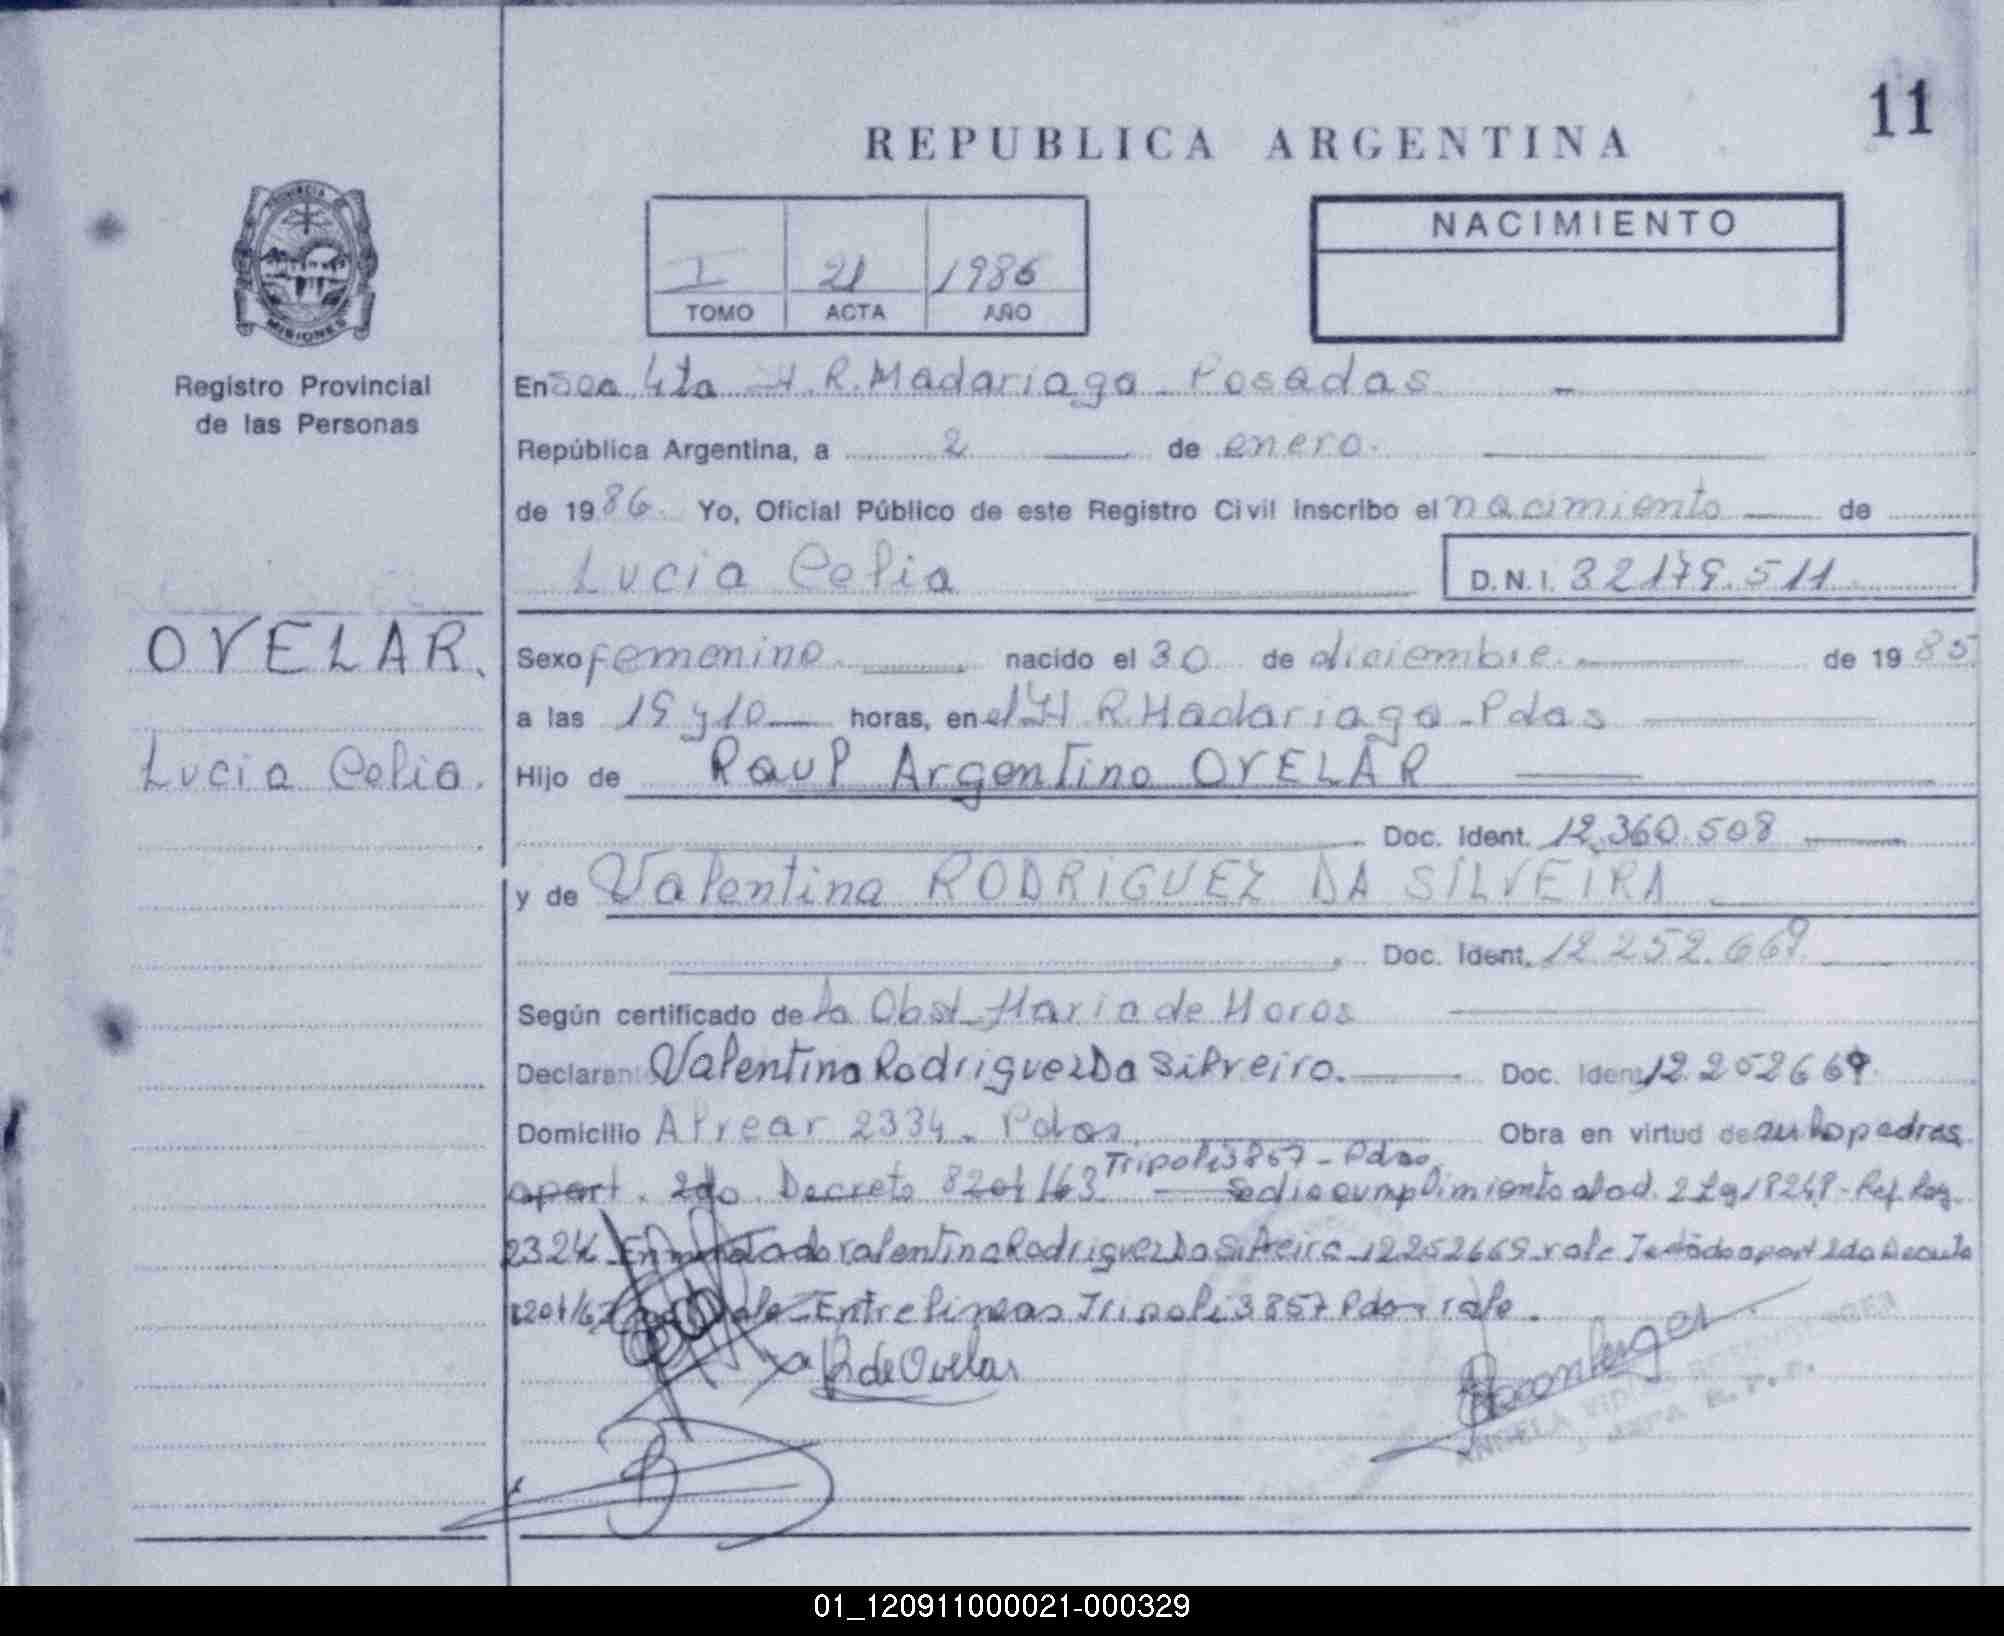 11
REPUBLICA ARGENTINA
PROVINCIA
MISIONES
Registro Provincial
de las Personas
I 21 1986
TOMO ACTA AÑO
NACIMIENTO
En Sec 4ta H. R. Madariaga - Posadas
República Argentina, a 2 de enero.
de 1986. Yo, Oficial Público de este Registro Civil inscribo el nacimiento de
Lucia Celia D.N.I. 32179.511
OVELAR.
Lucia Celia.
Sexo femenino nacido el 30 de diciembre de 1985
a las 19 y 10 horas, en el H R. Madariaga - Pdas
Hijo de Raul Argentino OVELAR
Doc. Ident. 12.360.508
y de Valentina RODRIGUEZ DA SILVEIRA
Doc. Ident. 12.252.669
Según certificado de la Obst. Maria de Horos
Declarante Valentina Rodriguez Da Silveira. Doc. Ident. 12.252669
Domicilio Alvear 2334 - Pdas. Obra en virtud de
Tripoli 3857 - Pdas
apart. 2do Decreto 8204/63 Se dio cumplimiento al ad. 2 Lg 18248 - Ref. Reg.
2324 Enmendado Valentina Rodriguez Da Silveira 12252669 vale Testado apart 2do Decreto
8204/63 vale - Entrelineas Tripoli 3857 Pdas vale.
R de Ovelar
ANGELA
01_120911000021-000329